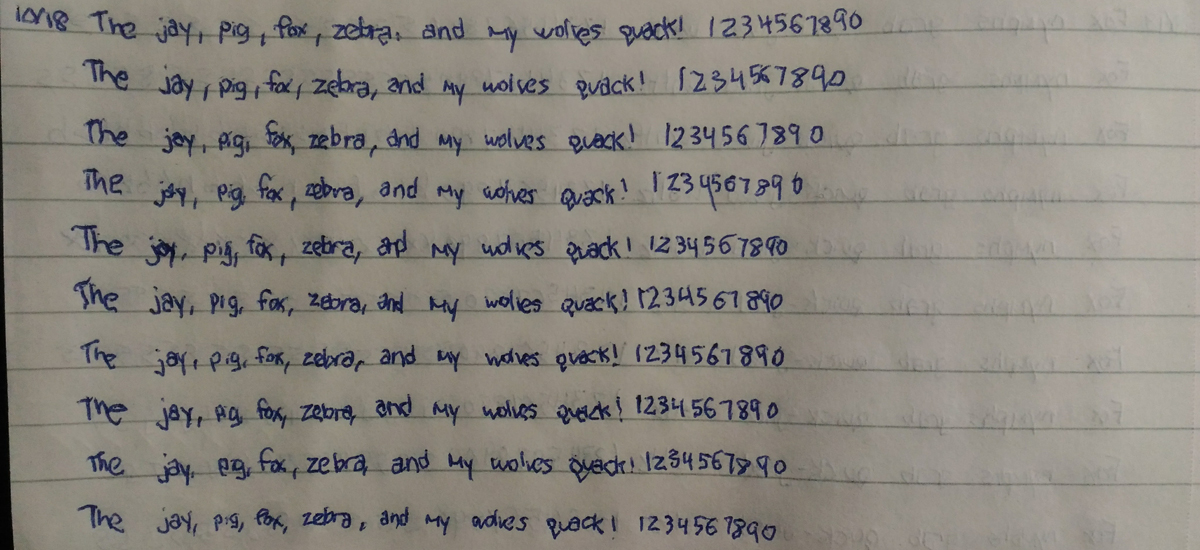 10/18 The jay, pig, fox, zebra, and my wolves quack! 1234567890
The jay, pig, fox, zebra, and my wolves quack! 1234567890
The jay, pig, fox, zebra, and my wolves quack! 1234567890
The jay, pig, fox, zebra, and my wolves quack! 1234567890
The jay, pig, fox, zebra, and my wolves quack! 1234567890
The jay, pig, fox, zebra, and my wolves quack! 1234567890
The jay, pig, fox, zebra, and my wolves quack! 1234567890
The jay, pig, fox, zebra, and my wolves quack! 1234567890
The jay, pig, fox, zebra, and my wolves quack! 1234567890
The jay, pig, fox, zebra, and my wolves quack! 1234567890